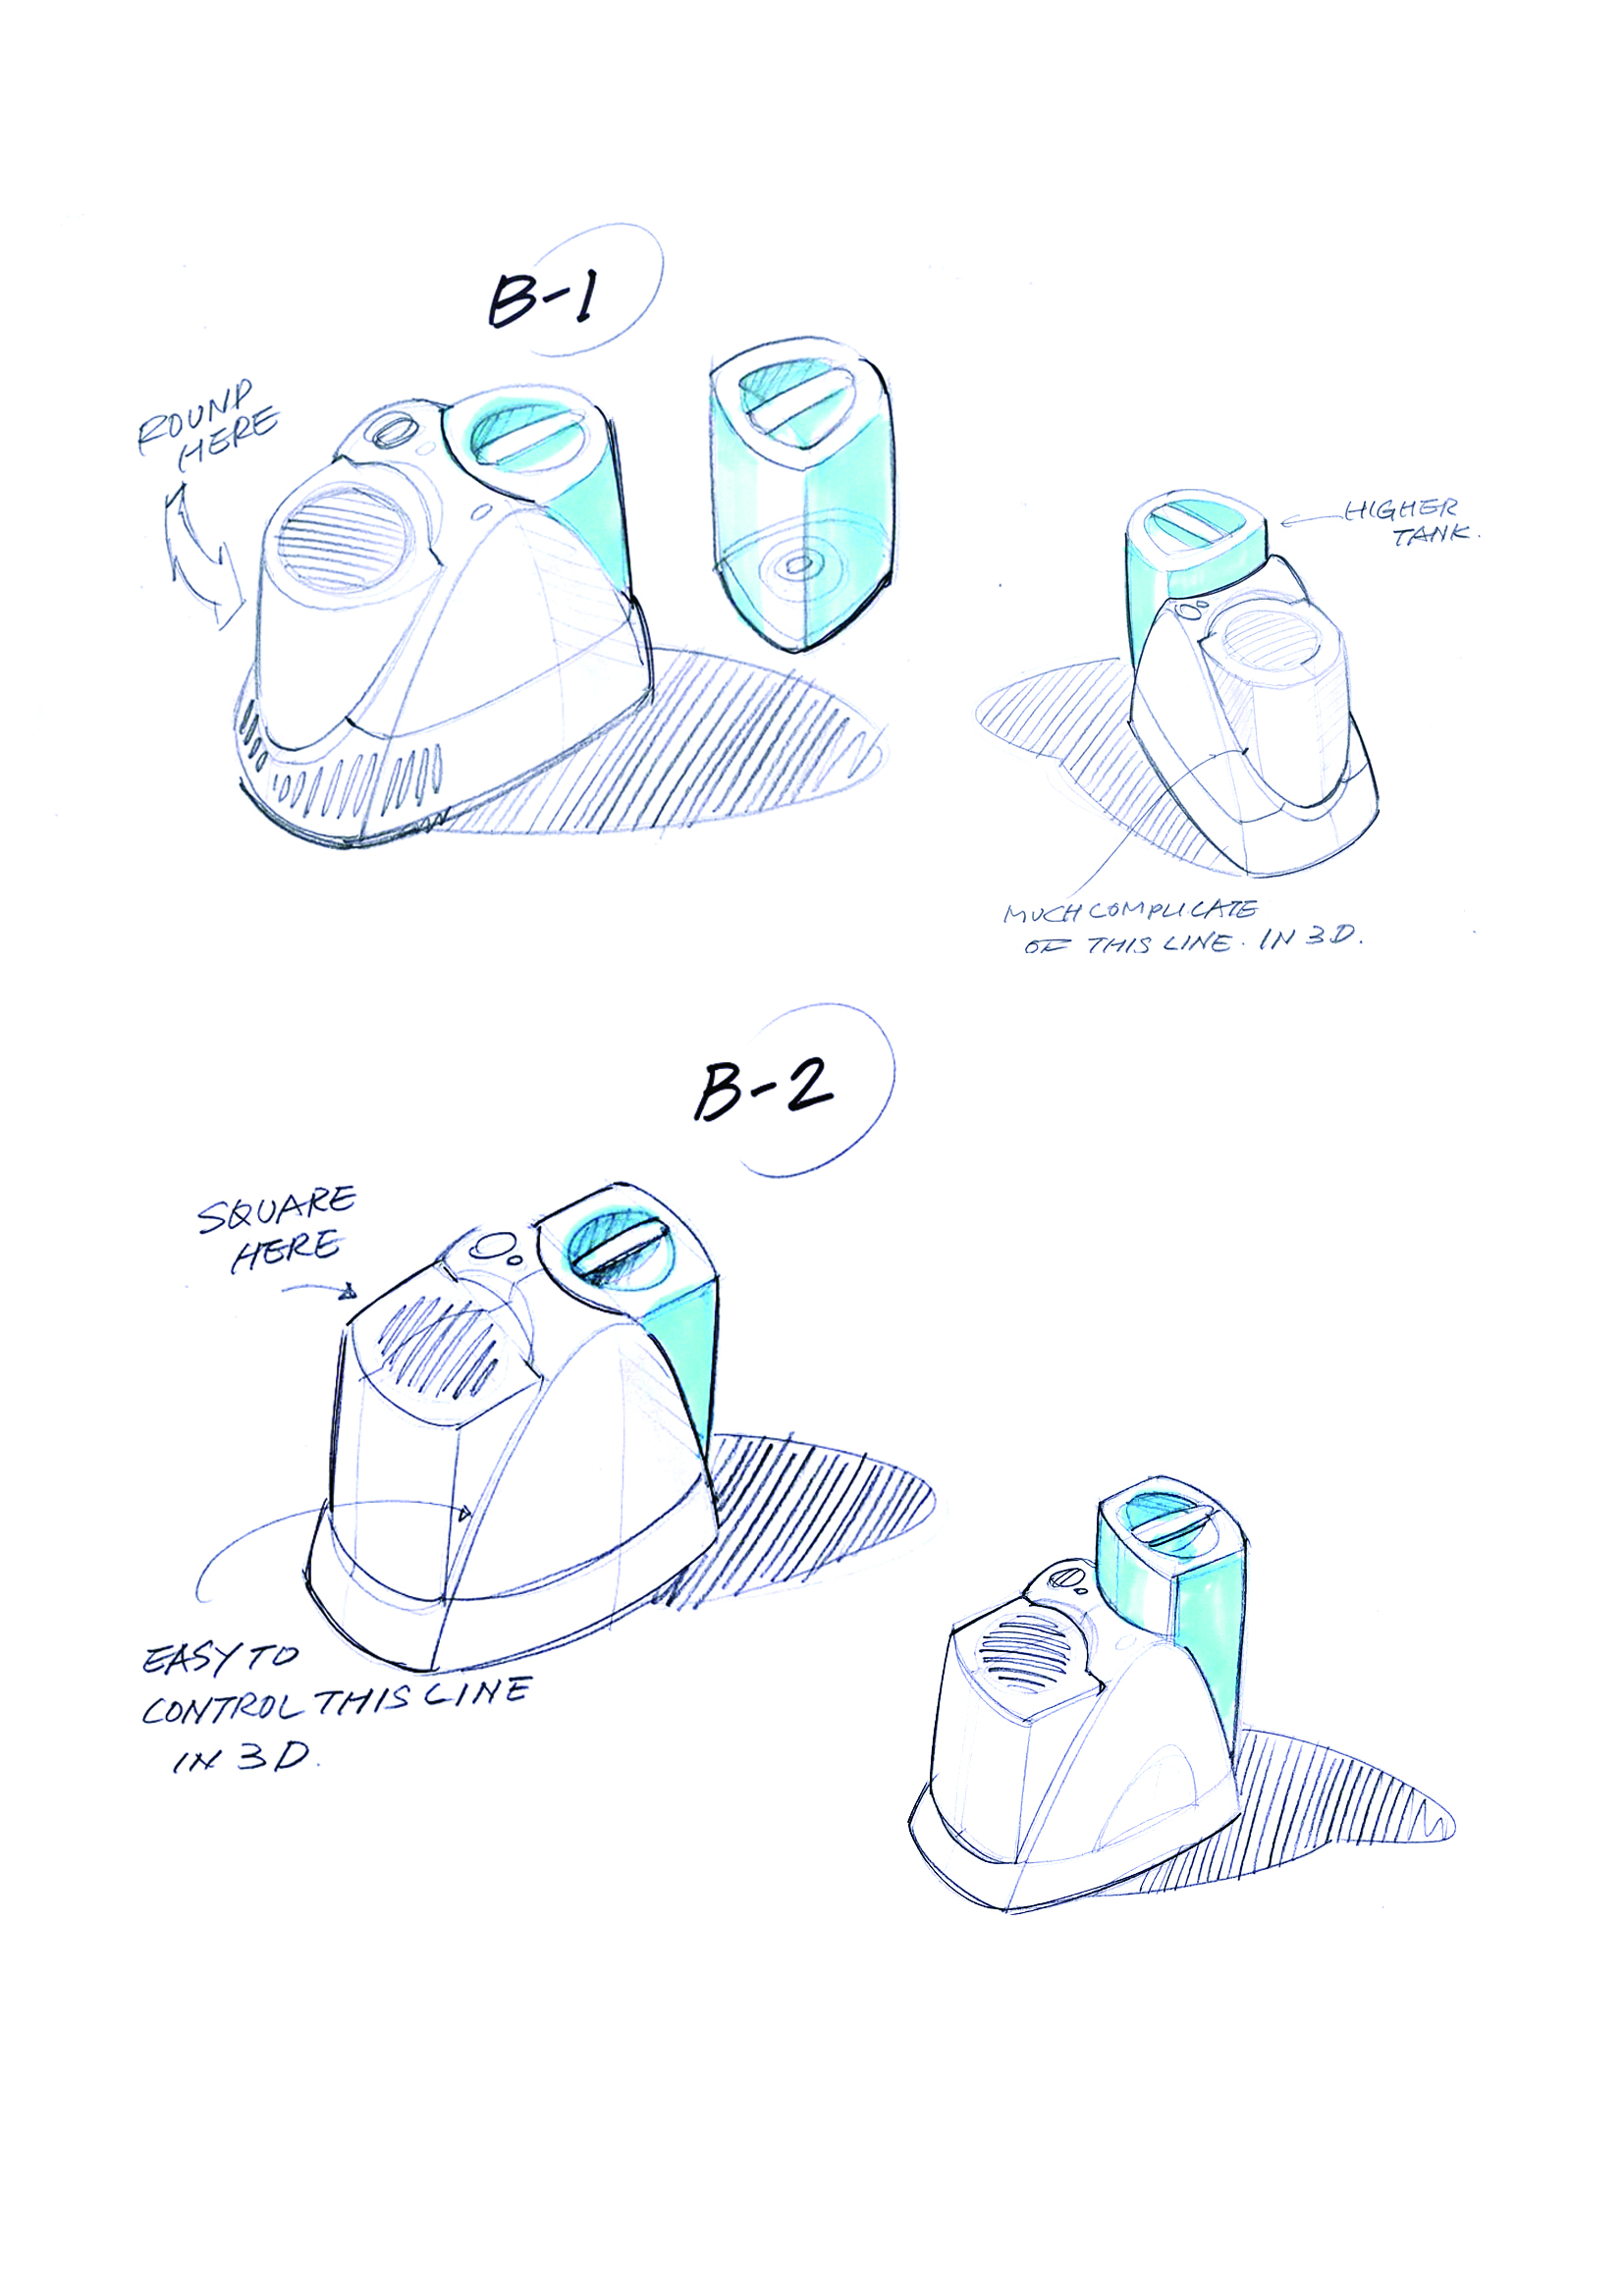 B-1
ROUND
HERE
HIGHER
TANK.
MUCH COMPLICATE
OF THIS LINE. IN 3D.
B-2
SQUARE
HERE
EASY TO
CONTROL THIS LINE
IN 3D.